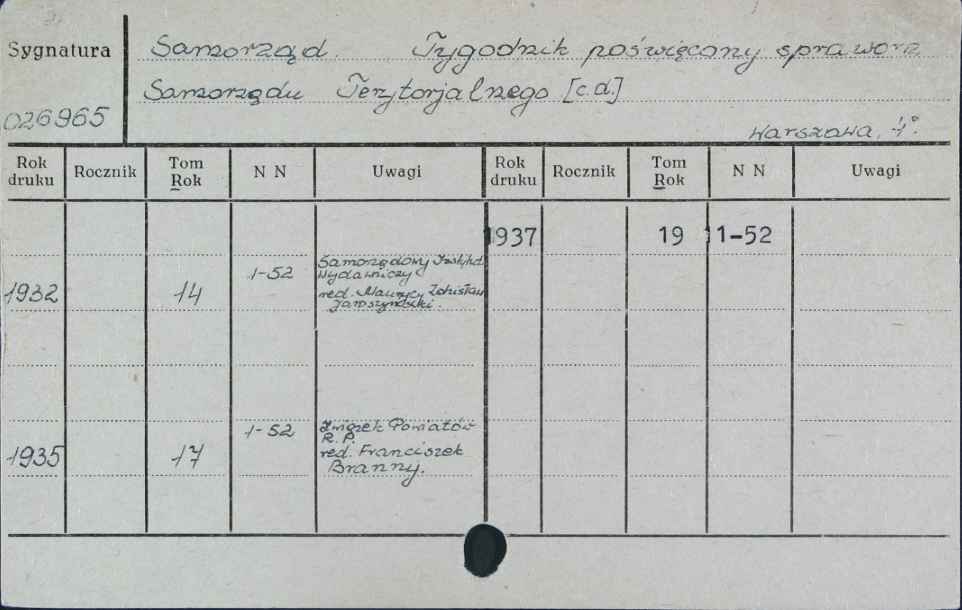 Sygnatura
026965
Samorząd. Tygodnik poświęcony sprawom
Samorządu Terytorjalnego [c.d.]
Warszawa, 4°.
Rok druku Rocznik Tom Rok N N Uwagi Rok druku Rocznik Tom Rok N N Uwagi
1937 19 1-52
1932 14 1-52 Samorządowy Instytut
Wydawniczy
red. Maurycy Zdzisław
Jaroszyński.
1935 17 1-52 Związek Powiatów
R.P.
red. Franciszek
Branny.